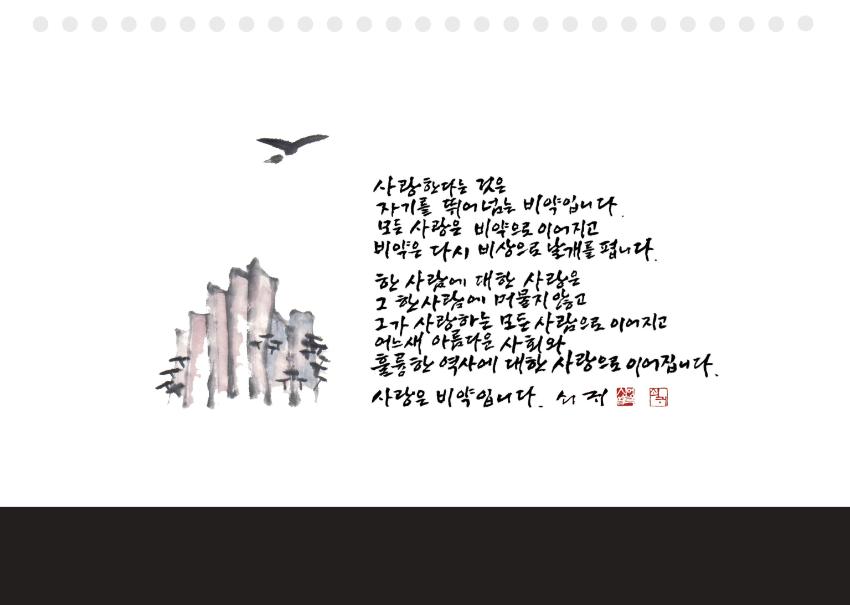 사랑한다는 것은
자기를 뛰어넘는 비약입니다.
모든 사랑은 비약으로 이어지고
비약은 다시 비상으로 날개를 폅니다.
한 사람에 대한 사랑은
그 한사람에 머물지 않고
그가 사랑하는 모든 사람으로 이어지고
어느새 아름다운 사회와
훌륭한 역사에 대한 사랑으로 이어집니다.
사랑은 비약입니다.